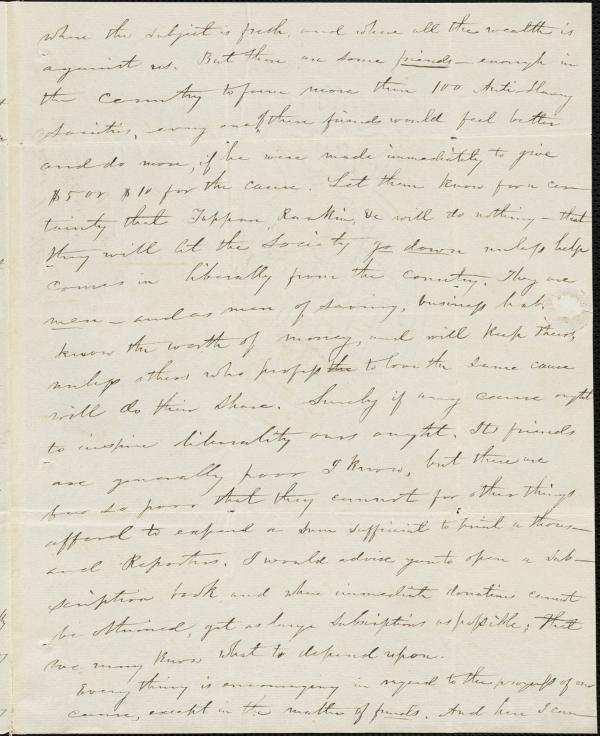 where the subject is fresh, and where all the wealth is
against us. But there are some friends — enough in
the country to form more than 100 Anti-Slavery
Societies, every one of these friends would feel better
and do more, if he were made immediately to give
$5 or $10 for the cause. Let them know for a cer-
tainty that Tappan, Rankin, &c will do nothing — that
they will let the Society go down unless help
comes in liberally from the country. They are
men — and as men of saving, business hab.
know the worth of money, and will keep theirs,
unless others who profess the to love the same cause
will do their share. Surely if any cause ought
to inspire liberality ours ought. Its friends
are generally poor I know, but there are
few so poor that they cannot for other things
afford to expend a sum sufficient to print a thous-
and Reporters. I would advise you to open a sub-
scription book and where immediate donations cannot
be obtained, get as large subscriptions as possible; that
we may know what to depend upon.
Every thing is encouraging in regard to the progress of our
cause, except in the matter of funds. And here I can